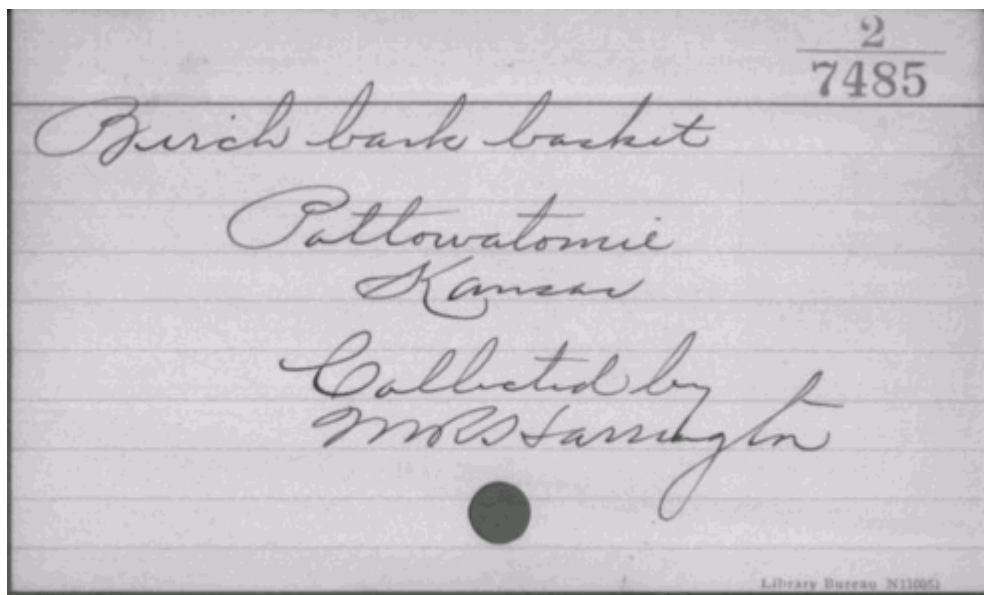 2
7485
Birch bark basket
Pottowatomie
Kansas
Collected by
M R Harrington
Library Bureau